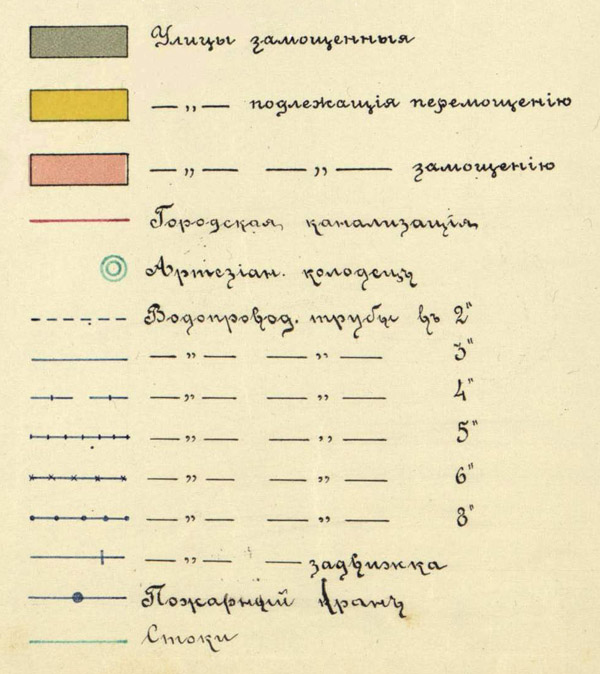 Улицы замощенныя
— „ — подлежащія перемощенію
— „ — — „ — замощенію
Городская канализація
Артезіан. колодецъ
Водопровод. трубы въ 2"
— „ — — „ — 3"
— „ — — „ — 4"
— „ — — „ — 5"
— „ — — „ — 6"
— „ — — „ — 8"
— „ — — задвижка
Пожарный кранъ
Стоки